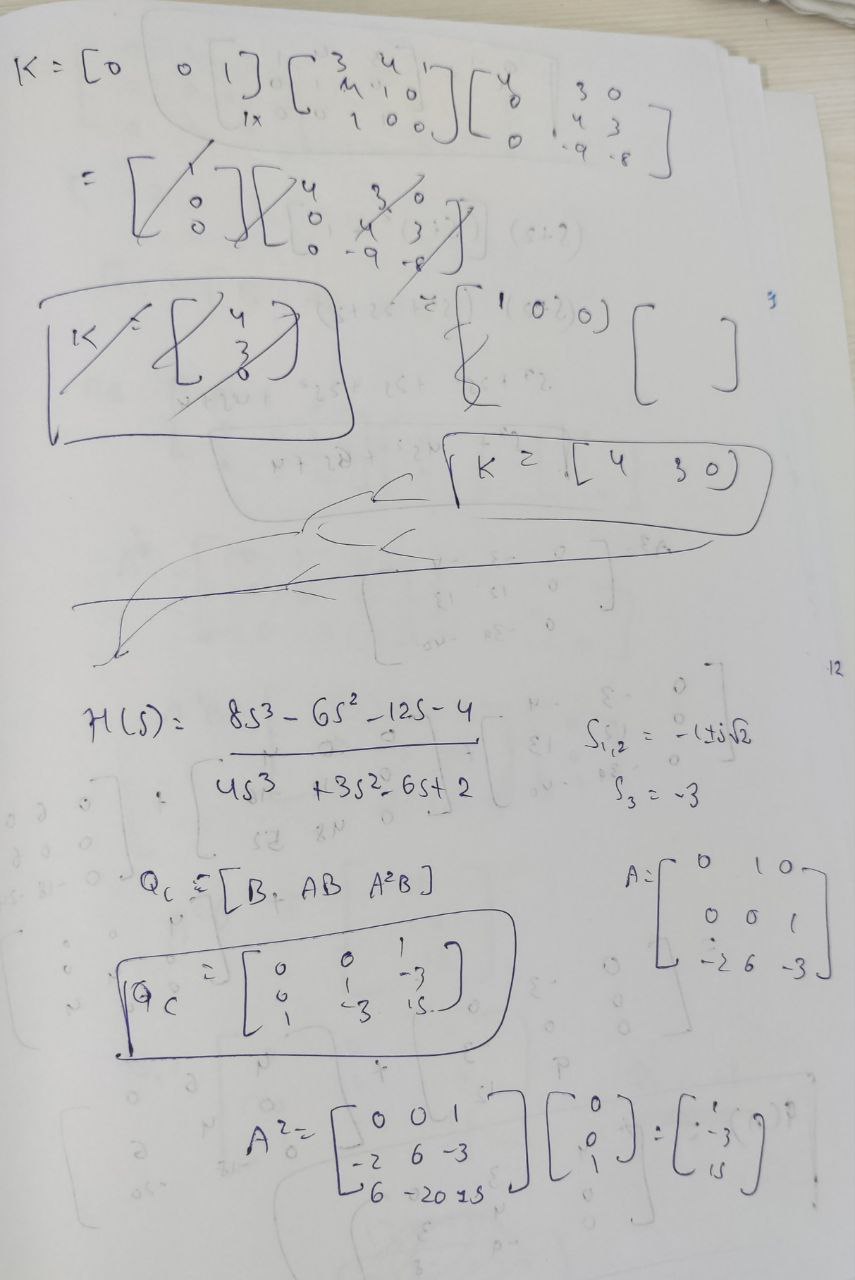 K = [0 0 1] [3 4 1 4 1 0 1 0 0] [4 3 0 0 4 3 0 -9 -8]
= [1 0 0] [4 3 0 0 4 3 0 -9 -8]
K = [4 3 0]
= [1 0 0] [ ]
K = [4 3 0]
H(s) = 8s³ - 6s² - 12s - 4
4s³ + 3s² - 6s + 2
S₁,₂ = -1±j√2
S₃ = -3
Qc = [B. AB A²B]
A = [0 1 0
0 0 1
-2 6 -3]
Qc = [0 0 1
0 1 -3
1 -3 15]
A² = [0 0 1 -2 6 -3 6 -20 15] [0 0 1] = [1 -3 15]
12